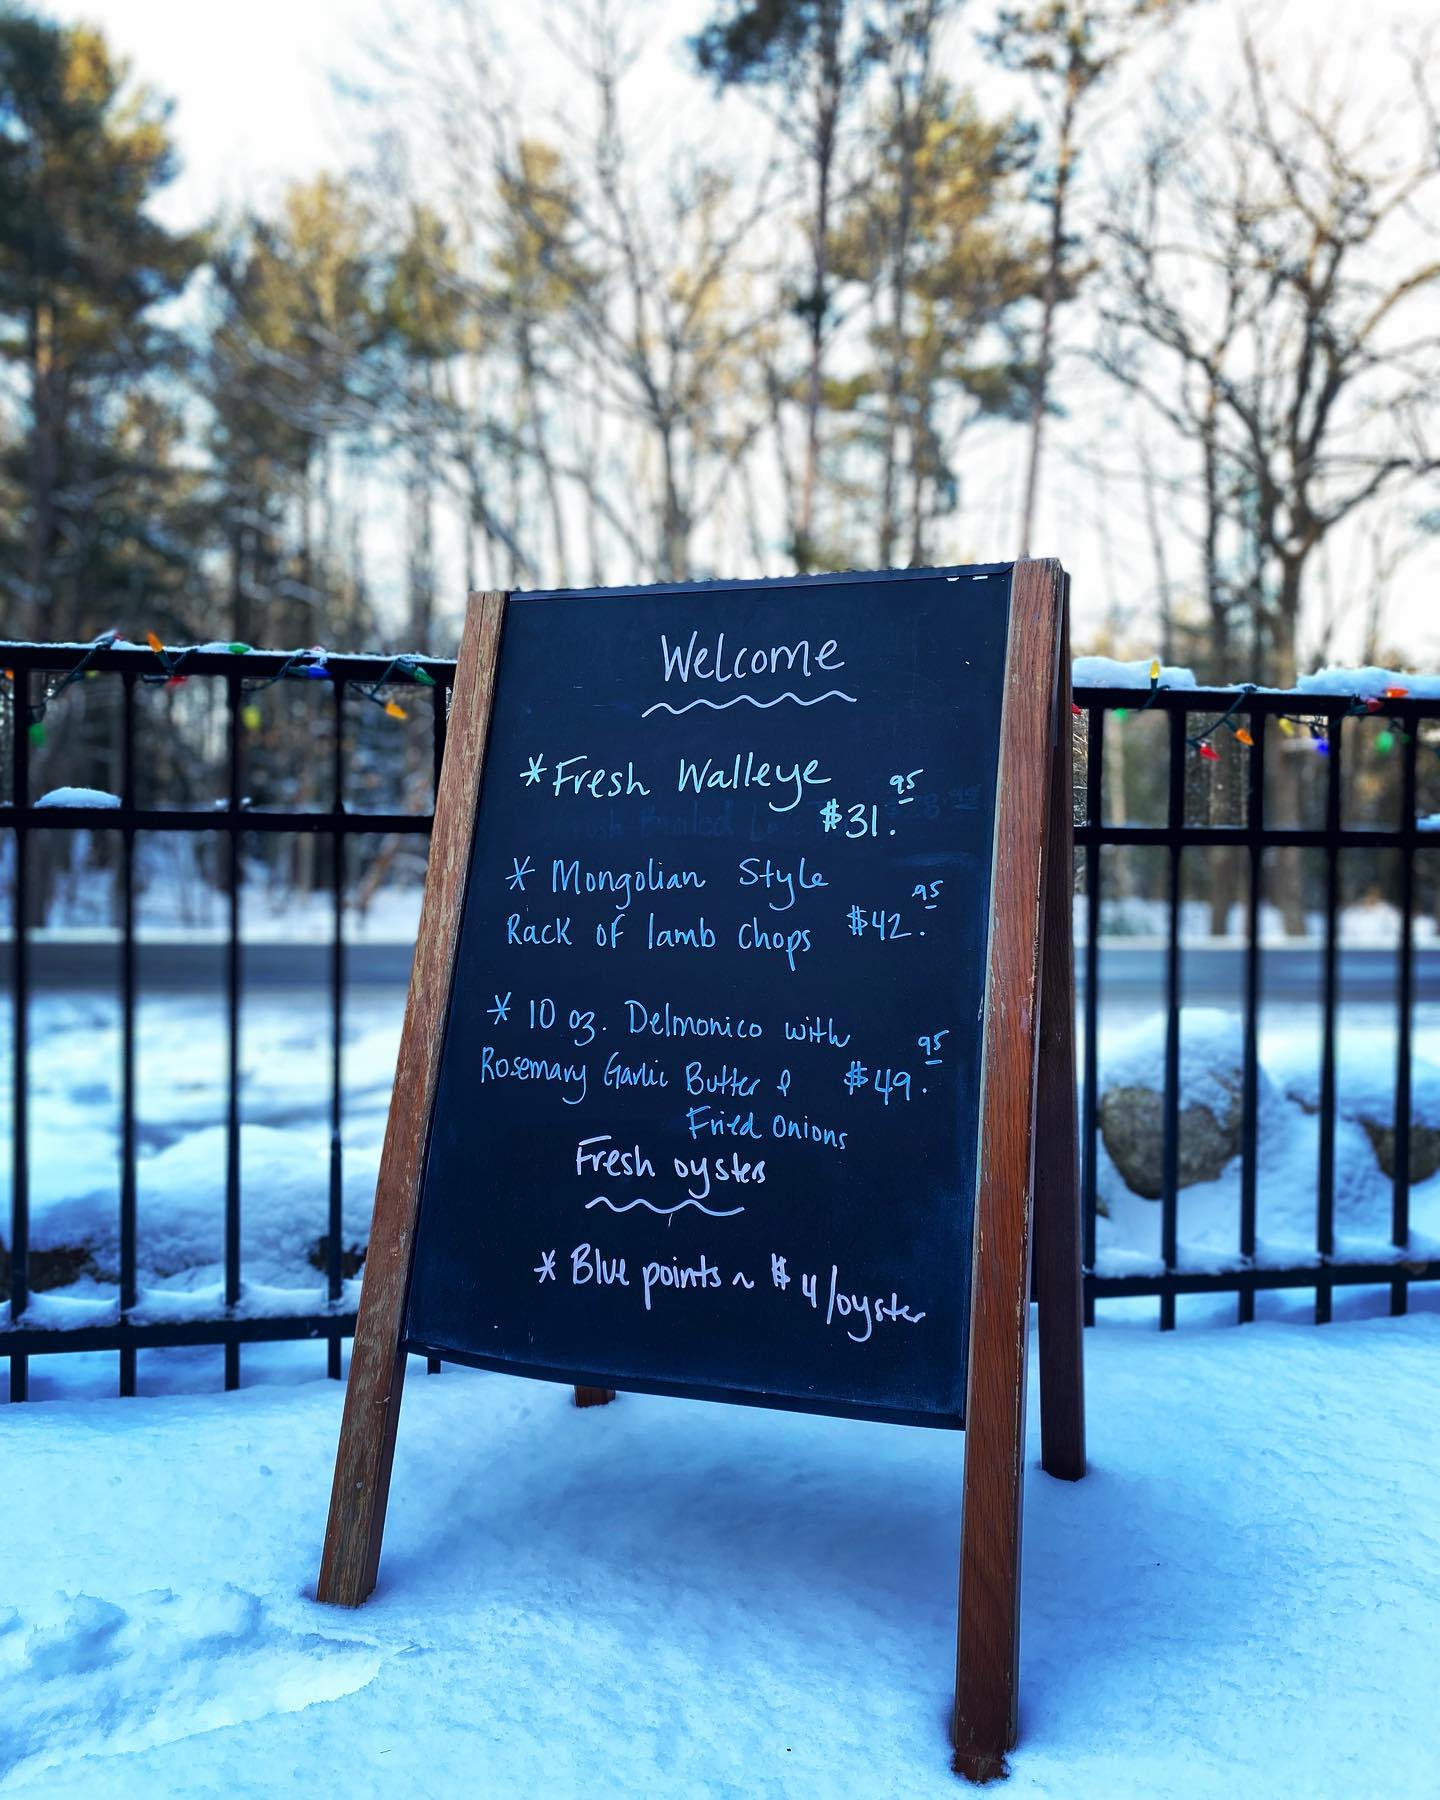 Welcome
*Fresh Walleye
$31.95
* Mongolian Style
Rack of lamb Chops $42.95
* 10 oz. Delmonico with
Rosemary Garlic Butter & $49.95
Fried Onions
Fresh oysters
* Blue points ~ $4/oyster